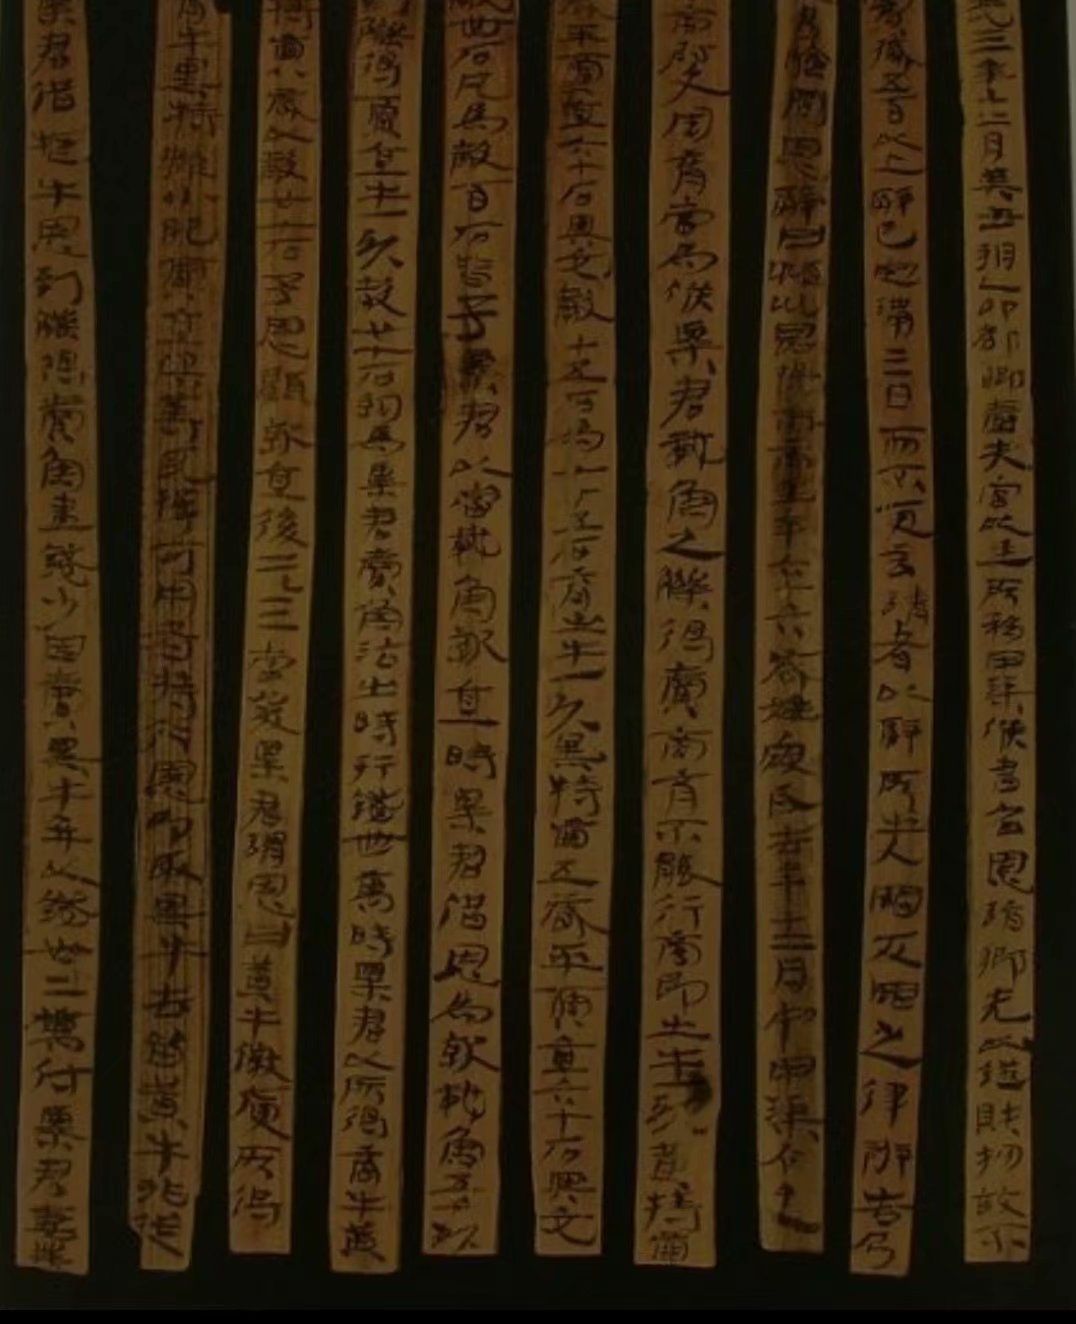 武三年十二月癸丑朔乙卯都鄉嗇夫宮以廷所移甲渠候書召恩詣鄉先以證財物故不
實臧五百以上辭已定滿三日而不更言請者以辭所出入罪反罪之律辨告乃
書驗問恩辭曰潁川昆陽市南里年六十六歲姓寇氏去年十二月中甲渠令史
商尉史周育當為候粟君載魚之觻得賣商育不能行商即出牛一頭黃特齒
歲平賈直六十石與它穀十五石為穀七十五石育出牛一頭黑特齒五歲平賈直六十石與它
穀卌石凡為穀百石皆予粟君以當載魚就直時粟君借恩為就載魚五千頭
到觻得賈直牛一頭穀廿七石約為粟君賣魚沽出時行錢卌萬時粟君以所得商牛黃
特齒八歲以穀廿七石予恩顧就直後二三日當發粟君謂恩曰黃牛微庾所得
育牛黑特雖小肥賈直俱等耳擇可用者持行恩即取黑牛去留黃牛非從
粟君借牛恩到觻得賣魚盡錢少因賣黑牛并以錢卅二萬付粟君妻業